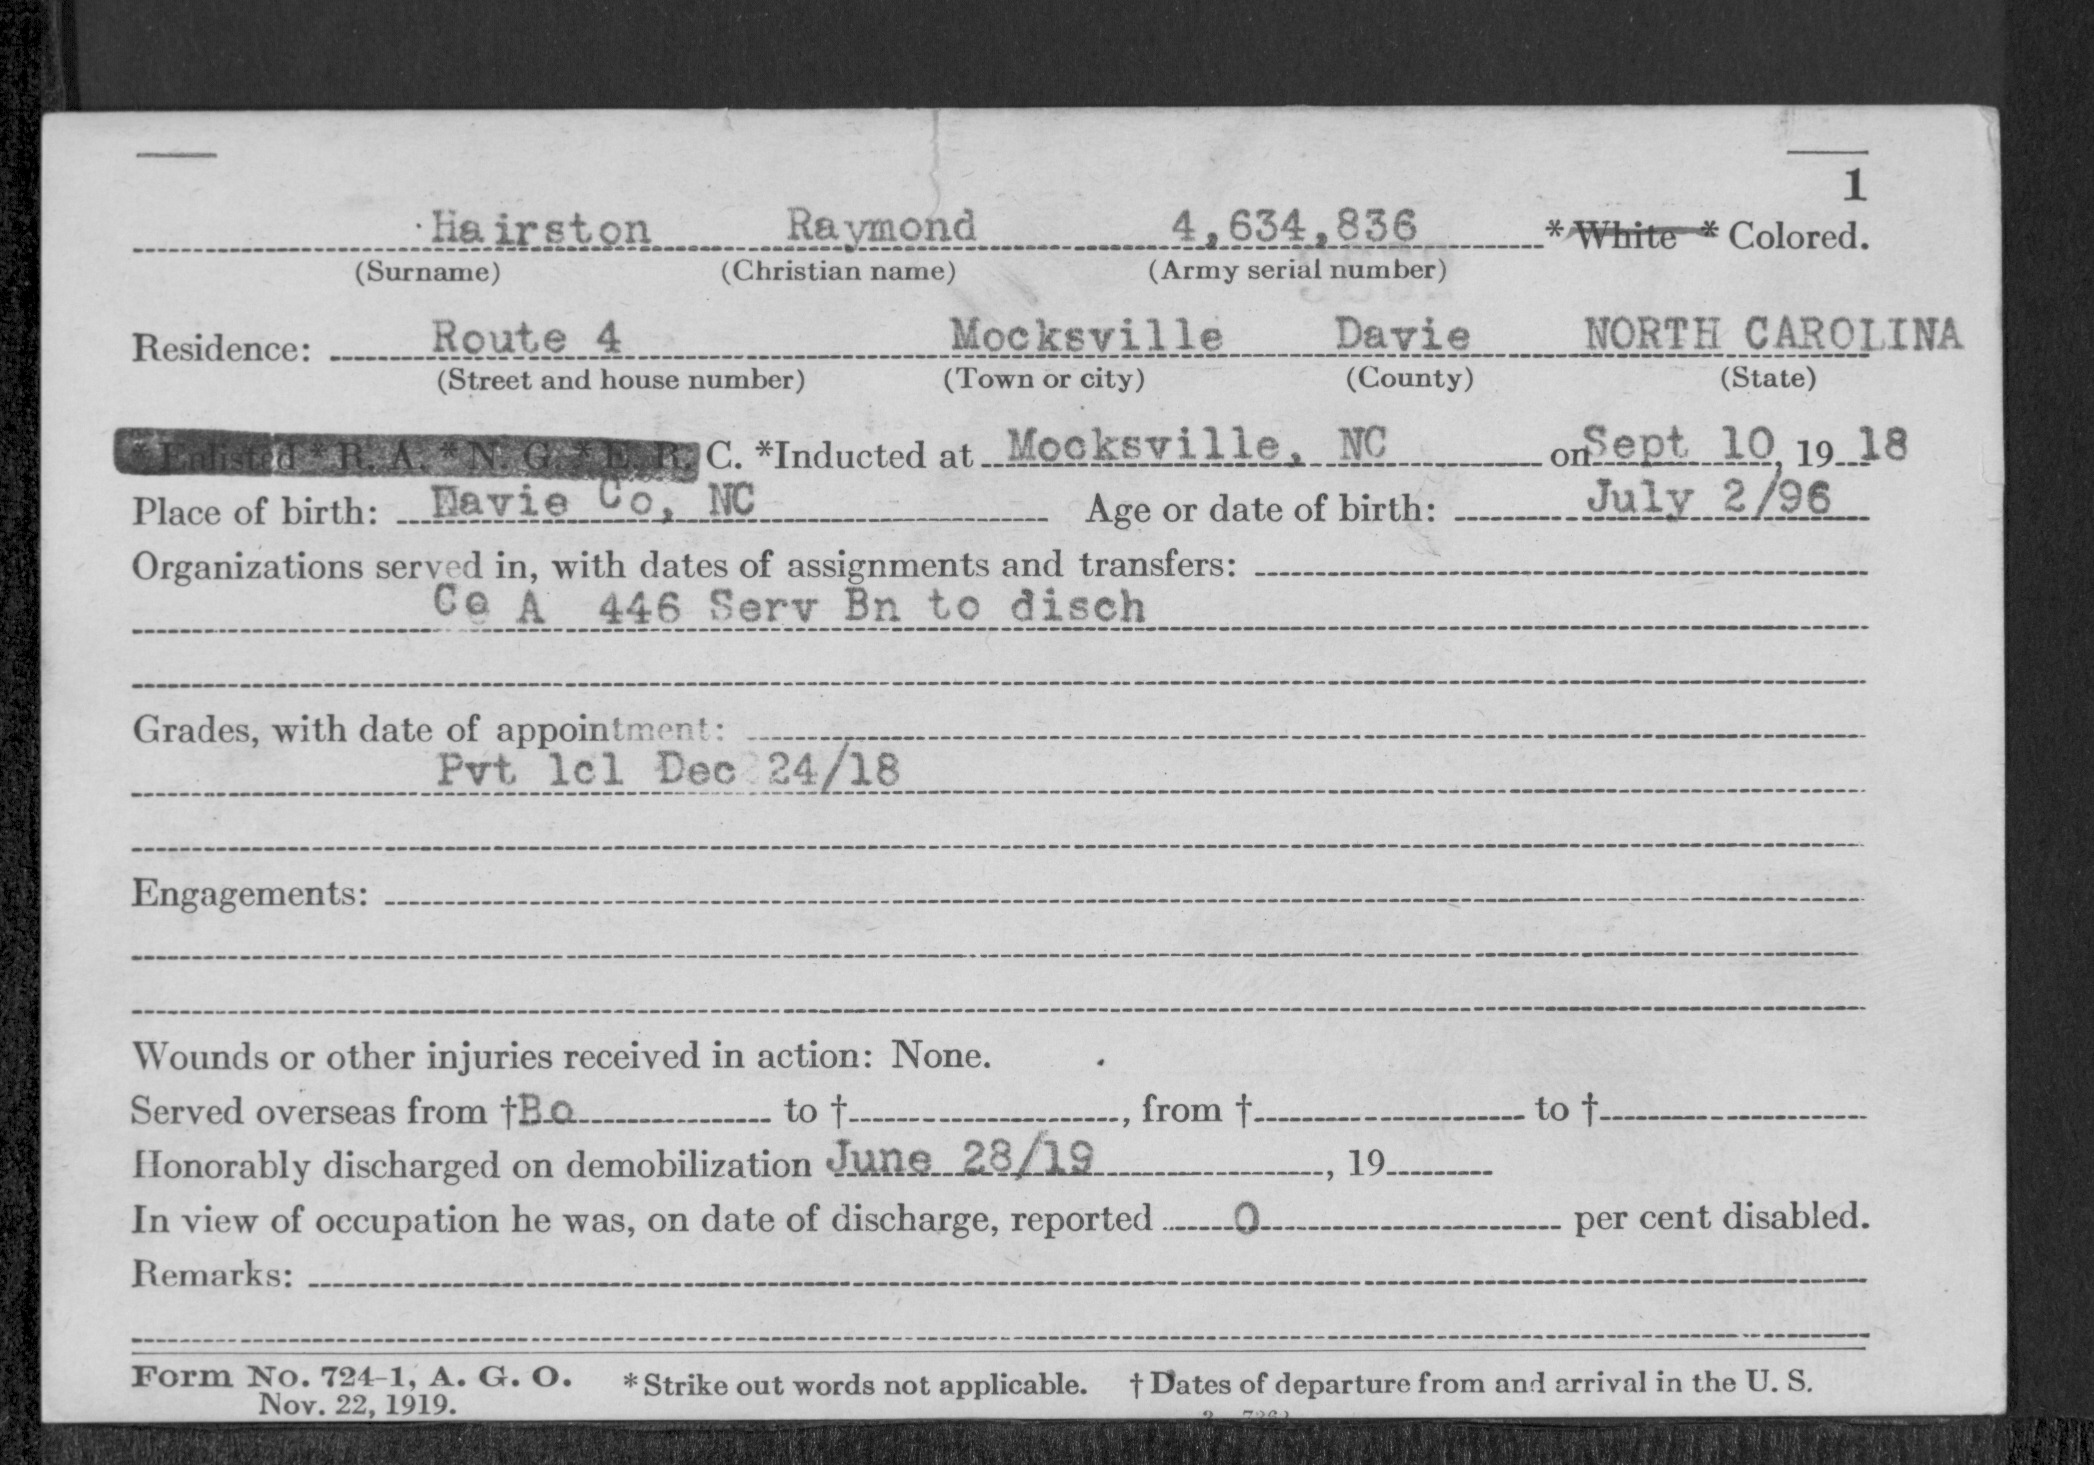 1
Hairston Raymond 4,634,836 * White * Colored.
(Surname) (Christian name) (Army serial number)
Residence: Route 4 Mocksville Davie NORTH CAROLINA
(Street and house number) (Town or city) (County) (State)
*Enlisted *R. A. *N. G. *E. R. C. *Inducted at Mocksville, NC on Sept 10, 19 18
Place of birth: Davie Co, NC Age or date of birth: July 2/96
Organizations served in, with dates of assignments and transfers:
Co A 446 Serv Bn to disch
Grades, with date of appointment:
Pvt 1cl Dec 24/18
Engagements:
Wounds or other injuries received in action: None.
Served overseas from † to †, from † to †
Honorably discharged on demobilization June 28/19, 19
In view of occupation he was, on date of discharge, reported 0 per cent disabled.
Remarks:
Form No. 724-1, A. G. O. *Strike out words not applicable. †Dates of departure from and arrival in the U. S.
Nov. 22, 1919.